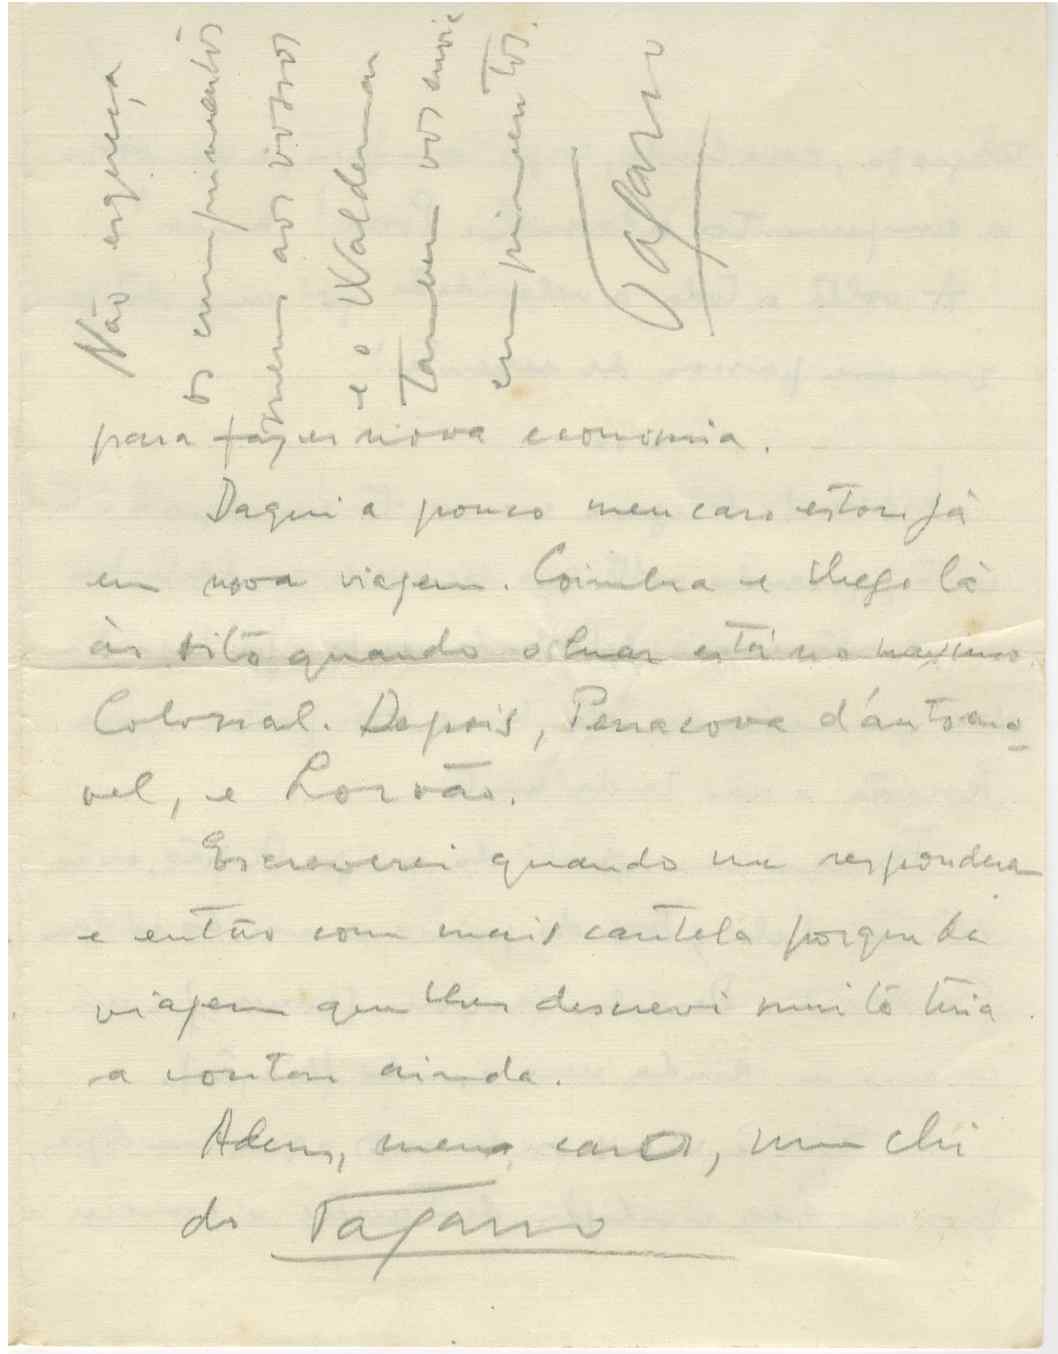 para fazer nova economia.
Daqui a pouco meu caro estou já
em nova viagem. Coimbra e chego lá
ás oito quando o luar está no maximo.
Colossal. Depois, Penacova d'automo-
vel, e Lorvão.
Escreverei quando me responder
e então com mais cautela porque da
viagem que lhes descrevi muito teria
a contar ainda.
Adeus, meu caro, um chi
do Tagarro
Não esqueça
os cumprimentos
meus aos vossos
e o Waldemar
Tambem vos envie
cumprimentos.
Tagarro